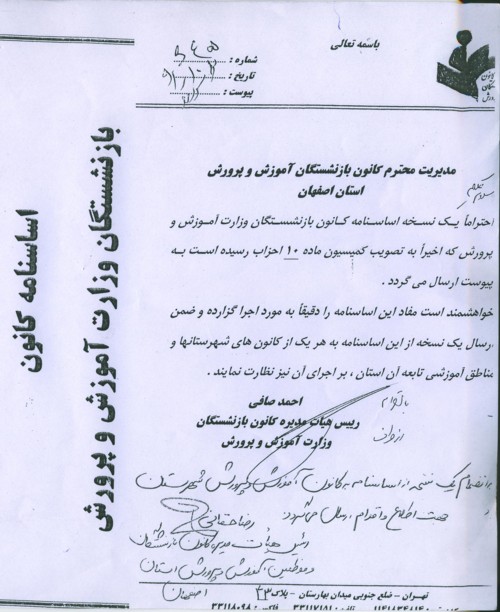 باسمه تعالی
شماره :
تاریخ :
پیوست :
کانون
مدیریت محترم کانون بازنشستگان آموزش و پرورش
استان اصفهان
احتراماً یک نسخه اساسنامه کانون بازنشستگان وزارت آموزش و
پرورش که اخیراً به تصویب کمیسیون ماده ۱۰ احزاب رسیده است به
پیوست ارسال می گردد .
خواهشمند است مفاد این اساسنامه را دقیقاً به مورد اجرا گزارده و ضمن
ارسال یک نسخه از این اساسنامه به هر یک از کانون های شهرستانها و
مناطق آموزشی تابعه آن استان ، بر اجرای آن نیز نظارت نمایند .
احمد صافی
رییس هیأت مدیره کانون بازنشستگان
وزارت آموزش و پرورش
یک نسخه از اساسنامه به کانون آموزش و پرورش شهرستان
جهت اطلاع و اقدام ارسال می شود
رئیس هیأت مدیره کانون بازنشستگان
آموزش و پرورش استان
اصفهان
تهران - ضلع جنوبی میدان بهارستان - پلاک ۴۳
اساسنامه کانون
بازنشستگان وزارت آموزش و پرورش